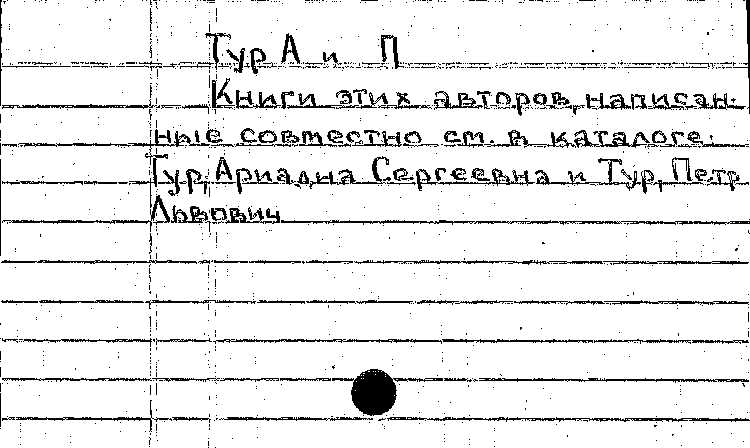 Тур А и П
Книги этих авторов, написан-
ные совместно см. в каталоге:
Тур, Ариадна Сергеевна и Тур, Петр
Львович